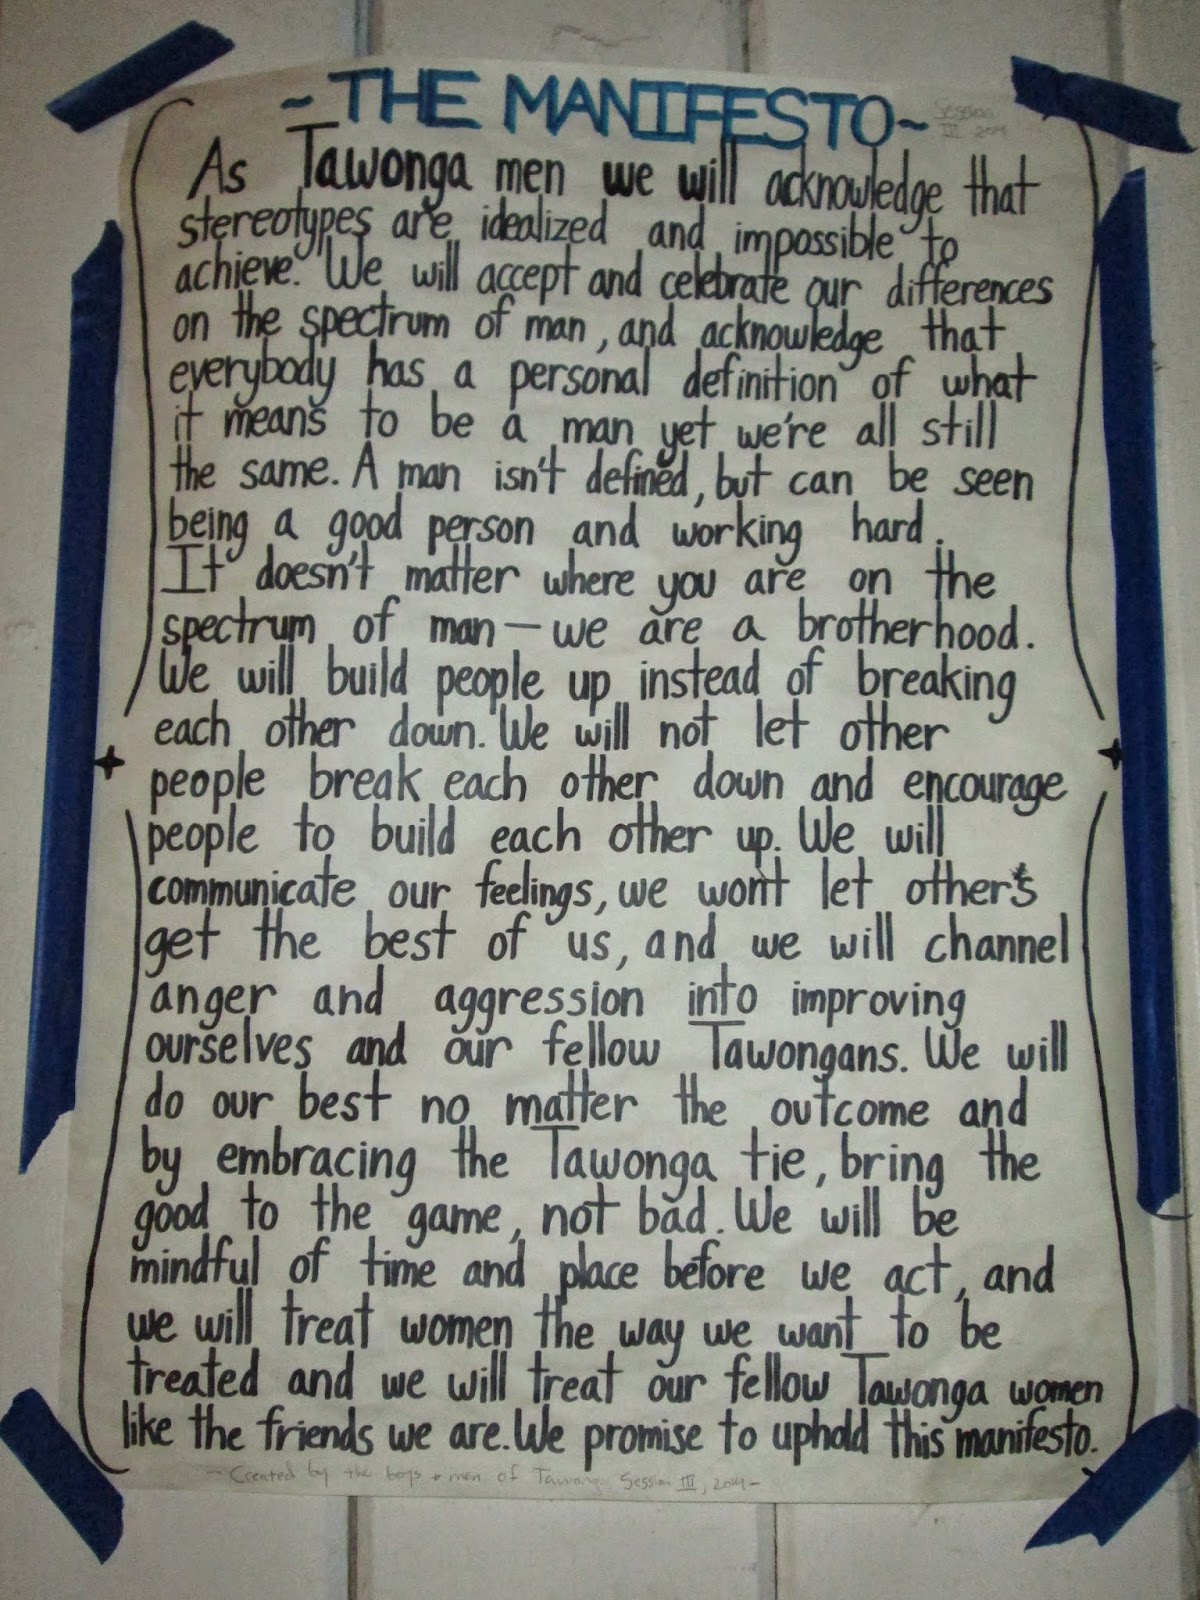 ~THE MANIFESTO~
Session
III 2014
As Tawonga men we will acknowledge that
stereotypes are idealized and impossible to
achieve. We will accept and celebrate our differences
on the spectrum of man, and acknowledge that
everybody has a personal definition of what
it means to be a man yet we're all still
the same. A man isn't defined, but can be seen
being a good person and working hard.
It doesn't matter where you are on the
spectrum of man—we are a brotherhood.
We will build people up instead of breaking
each other down. We will not let other
people break each other down and encourage
people to build each other up. We will
communicate our feelings, we won't let others
get the best of us, and we will channel
anger and aggression into improving
ourselves and our fellow Tawongans. We will
do our best no matter the outcome and
by embracing the Tawonga tie, bring the
good to the game, not bad. We will be
mindful of time and place before we act, and
we will treat women the way we want to be
treated and we will treat our fellow Tawonga women
like the friends we are. We promise to uphold this manifesto.
~Created by the boys + men of Tawonga Session III, 2014~